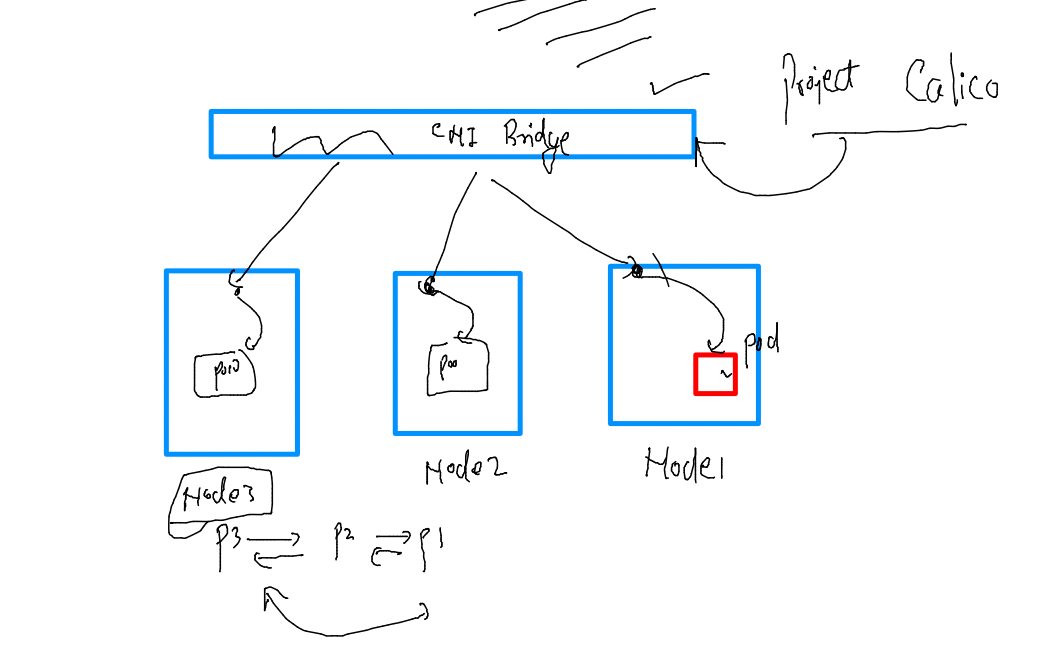 Project Calico
CNI Bridge
pod
pod
Node3
Node2
Node1
P3 P2 P1